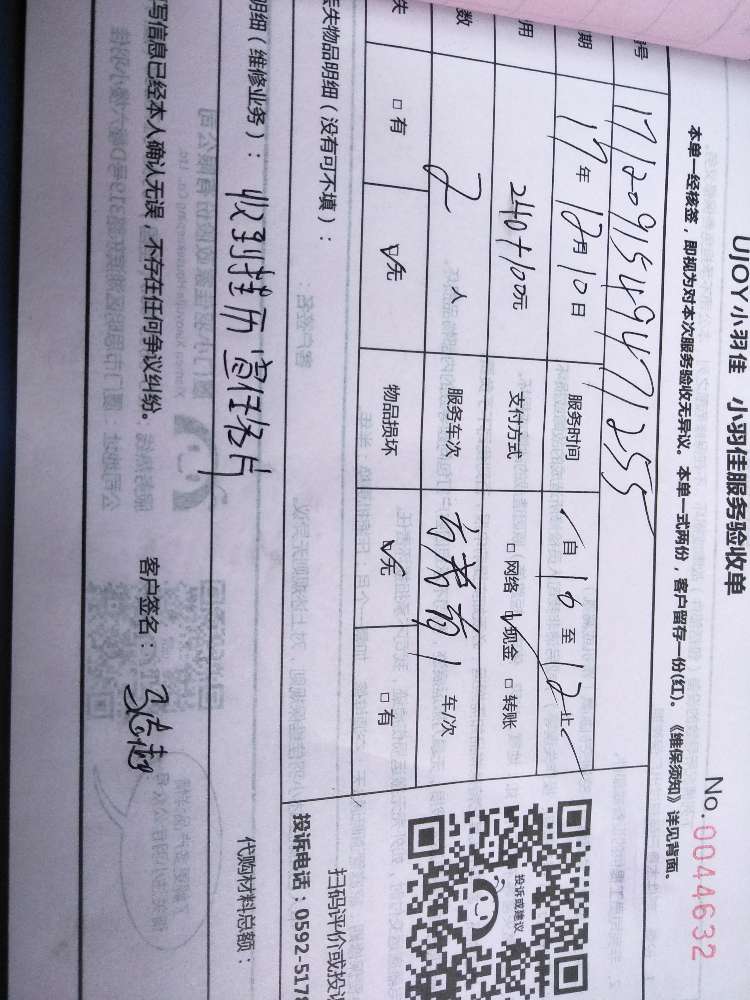 UJOY小羽佳 小羽佳服务验收单
No. 0044632
本单一经核签，即视为对本次服务验收无异议。本单一式两份，客户留存一份(红)。《维保须知》详见背面。
号 1712091549471255
期 17年12月10日 服务时间 自10至12止
用 240+100元 支付方式 □网络 ☑现金 □转账
数 2人 服务车次 1车/次
失 □有 ☑无 物品损坏 ☑无 □有
丢失物品明细（没有可不填）：
扫码评价或投诉
投诉或建议
投诉电话：0592-5178
明细（维修业务）：收到挂历 宣任名片
代购材料总额：
写信息已经本人确认无误，不存在任何争议纠纷。 客户签名：